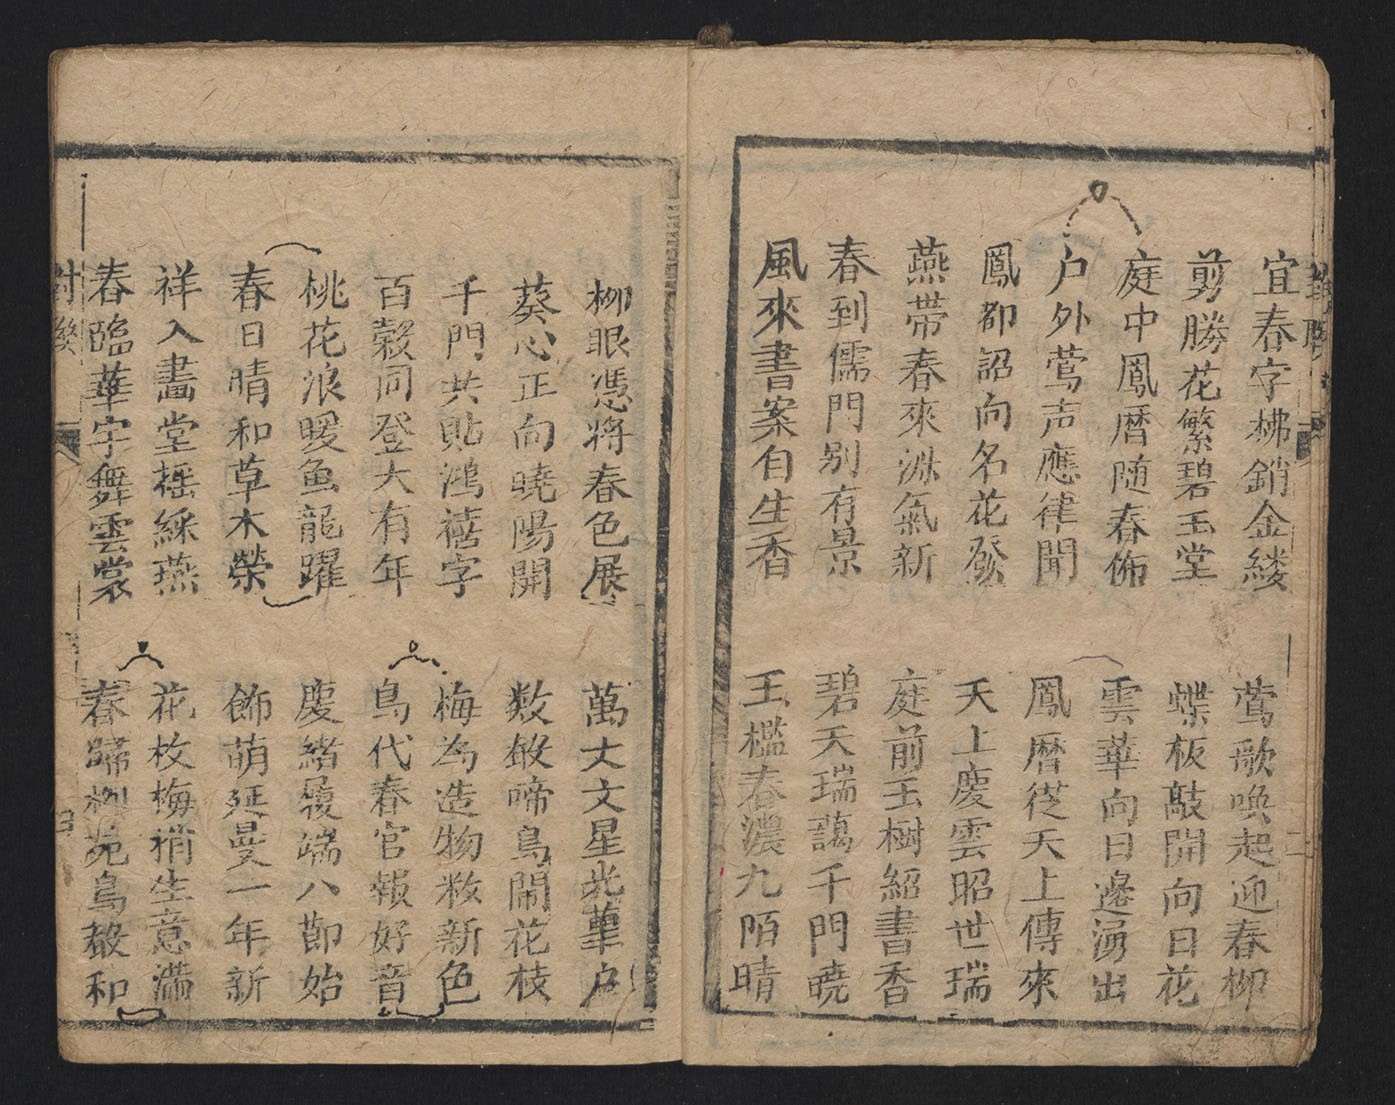 宜春字拂銷金縷
剪勝花繁碧玉堂
庭中鳳曆随春佈
户外莺声應律聞
鳳都詔向名花發
燕帶春來淑氣新
春到儒門别有景
風來書案自生香
莺歌喚起迎春柳
蝶板敲開向日花
雲華向日邊湧出
鳳曆從天上傳來
天上慶雲昭世瑞
庭前玉樹紹書香
碧天瑞藹千門曉
玉檻春濃九陌晴
柳眼憑將春色展
葵心正向曉陽開
千門共貼鴻禧字
百穀同登大有年
桃花浪暖鱼龍躍
春日晴和草木榮
祥入畵堂摇綵燕
春臨華宇舞雲裳
萬丈文星光蓽户
数啼鳥鬧花枝
梅為造物敉新色
鳥代春官報好音
慶緒履端八節始
飾萌延曼一年新
花枚梅梢生意滿
春歸柳苑鳥聲和
對聯